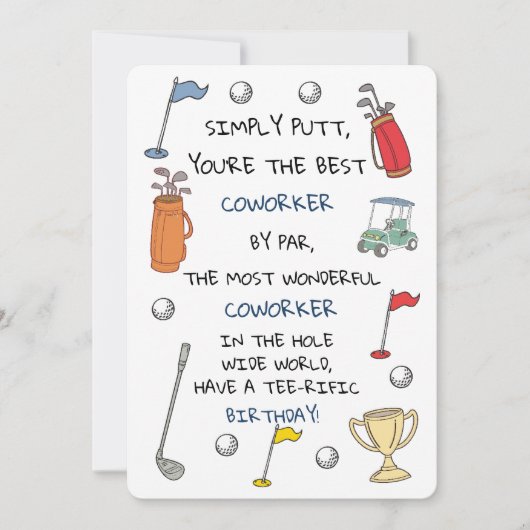 SIMPLY PUTT,
YOU'RE THE BEST
COWORKER
BY PAR,
THE MOST WONDERFUL
COWORKER
IN THE HOLE
WIDE WORLD,
HAVE A TEE-RIFIC
BIRTHDAY!